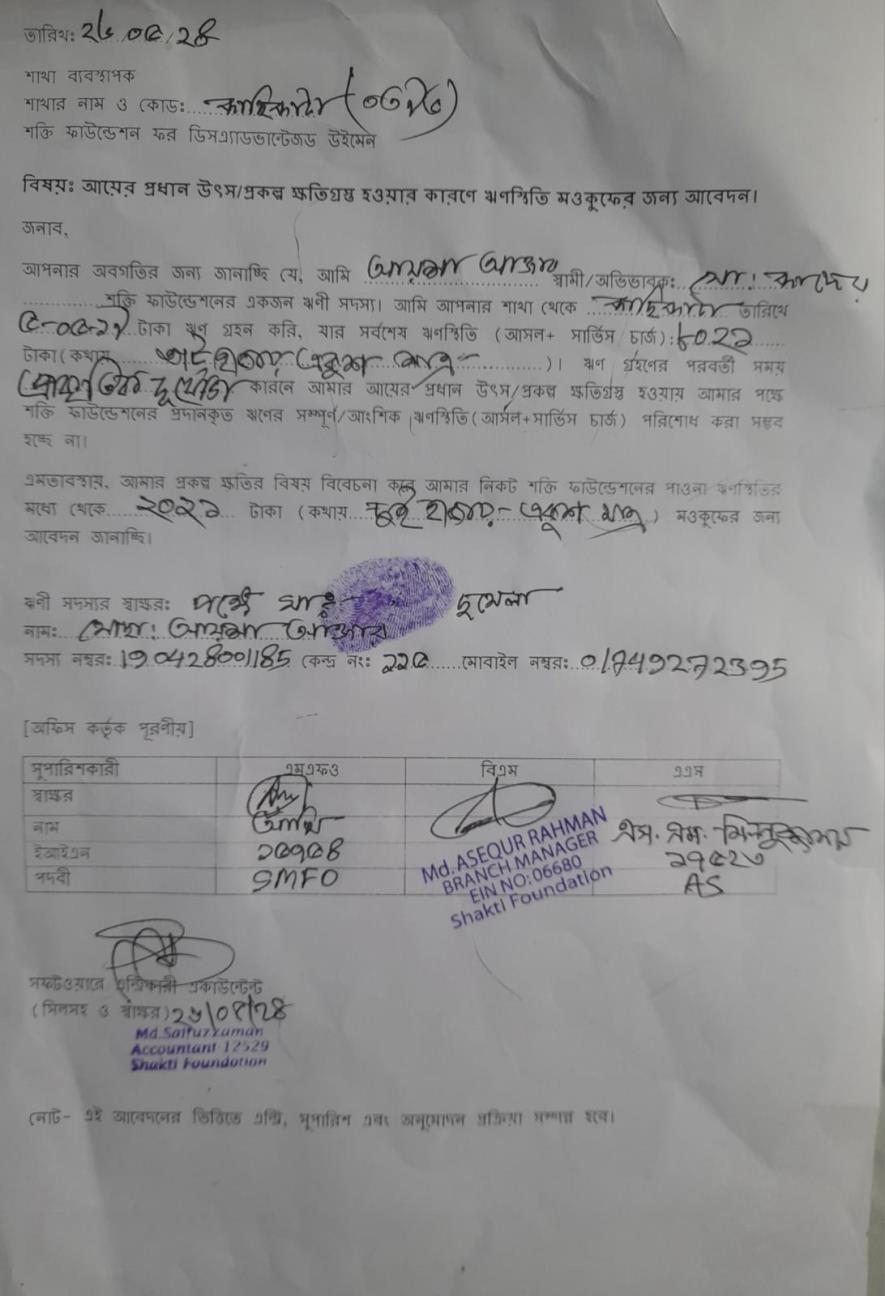 তারিখ: ২৬/০৫/২৪
শাখা ব্যবস্থাপক
শাখার নাম ও কোড:
শক্তি ফাউন্ডেশন ফর ডিসএ্যাডভান্টেজড উইমেন
বিষয়ঃ আয়ের প্রধান উৎস/প্রকল্প ক্ষতিগ্রস্থ হওয়ার কারণে ঋণস্থিতি মওকুফের জন্য আবেদন।
জনাব,
আপনার অবগতির জন্য জানাচ্ছি যে, আমি আয়শা আক্তার স্বামী/অভিভাবক: মো: কাদের
শক্তি ফাউন্ডেশনের একজন ঋনী সদস্য। আমি আপনার শাখা থেকে তারিখে
টাকা ঋণ গ্রহন করি, যার সর্বশেষ ঋণস্থিতি (আসল+ সার্ভিস চার্জ): ৮০২১
টাকা(কথায় আট হাজার একুশ মাত্র)। ঋণ গ্রহণের পরবর্তী সময়
প্রাকৃতিক দূর্যোগ কারনে আমার আয়ের প্রধান উৎস/প্রকল্প ক্ষতিগ্রস্থ হওয়ায় আমার পক্ষে
শক্তি ফাউন্ডেশনের প্রদানকৃত ঋণের সম্পূর্ণ/আংশিক ঋণস্থিতি(আসল+সার্ভিস চার্জ) পরিশোধ করা সম্ভব
হচ্ছে না।
এমতাবস্থায়, আমার প্রকল্প ক্ষতির বিষয় বিবেচনা করে আমার নিকট শক্তি ফাউন্ডেশনের পাওনা ঋণস্থিতির
মধ্যে থেকে ২০২১ টাকা (কথায় দুই হাজার একুশ মাত্র) মওকুফের জন্য
আবেদন জানাচ্ছি।
ঋনী সদস্যর স্বাক্ষর: পক্ষে
নাম: মোছা: আয়শা আক্তার
সদস্য নম্বর: 190428001185 কেন্দ্র নং: ২২৫ মোবাইল নম্বর: 01749272395
[অফিস কর্তৃক পূরনীয়]
সুপারিশকারী এমএফও বিএম এএস
স্বাক্ষর
নাম
ইআইএন
পদবী SMFO AS
Md. ASEQUR RAHMAN
BRANCH MANAGER
EIN NO: 06680
Shakti Foundation
সফটওয়্যারে এন্ট্রিকারী একাউন্টেন্ট
(সিলসহ ও স্বাক্ষর)
Md. Saifuzzaman
Accountant 12529
Shakti Foundation
নোট- এই আবেদনের ভিত্তিতে এন্ট্রি, সুপারিশ এবং অনুমোদন প্রক্রিয়া সম্পন্ন হবে।